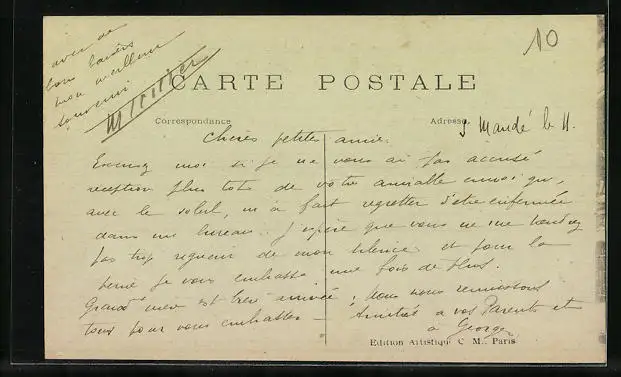 avec de
bons baisers
mon meilleur
souvenir
10
CARTE POSTALE
Correspondance
Adresse
St Mandé le 11.
Chères petites amie.
Excusez moi si je ne vous ai pas accusé
réception plus tôt de votre amiable envoi qui,
avec le soleil, m'a fait regretter d'être enfermée
dans un bureau. J'espère que vous ne me tiendrez
pas trop rigueur de mon silence et pour la
peine je vous embrasse une fois de plus.
Grand'mère est bien arrivée. Nous nous réunissons
tous pour vous embrasser - Amitiés à vos Parents et
à Georges
Edition Artistique C. M. Paris